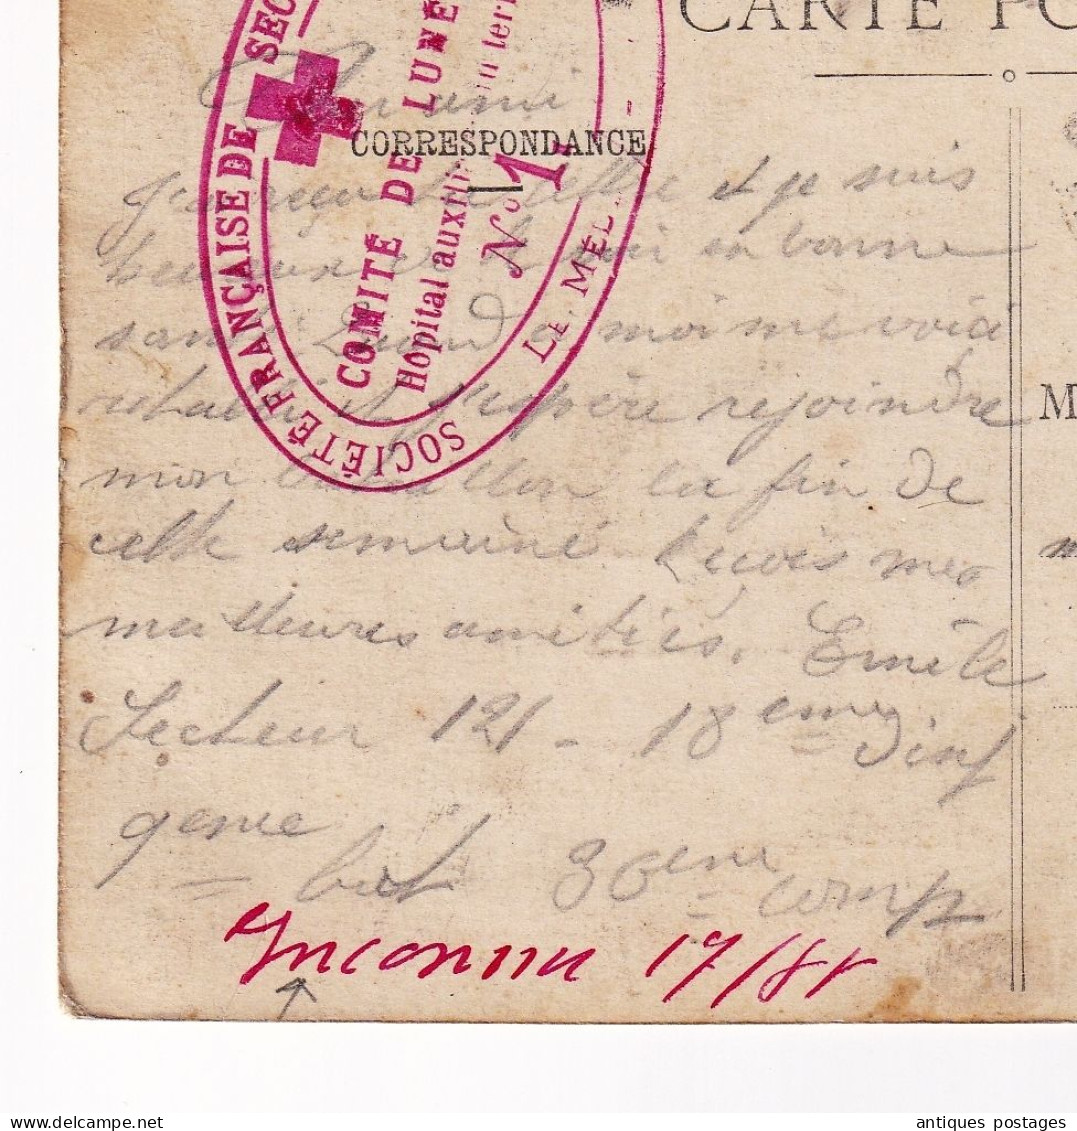 CARTE PO
SOCIÉTÉ FRANÇAISE DE SEC
COMITÉ DE LUNÉ
Hôpital auxili
No. 1
CORRESPONDANCE
J'ai reçu ta lettre et je suis
heureux de te voir en bonne
santé. Quand à moi me voici
rétabli et j'espère rejoindre
mon bataillon la fin de
cette semaine. Reçois mes
meilleures amitiés. Emile
Secteur 121 - 18eme d'inf
genre
bat 30eme comp
Inconnu 17/
M
delcampe.net
antiques postages